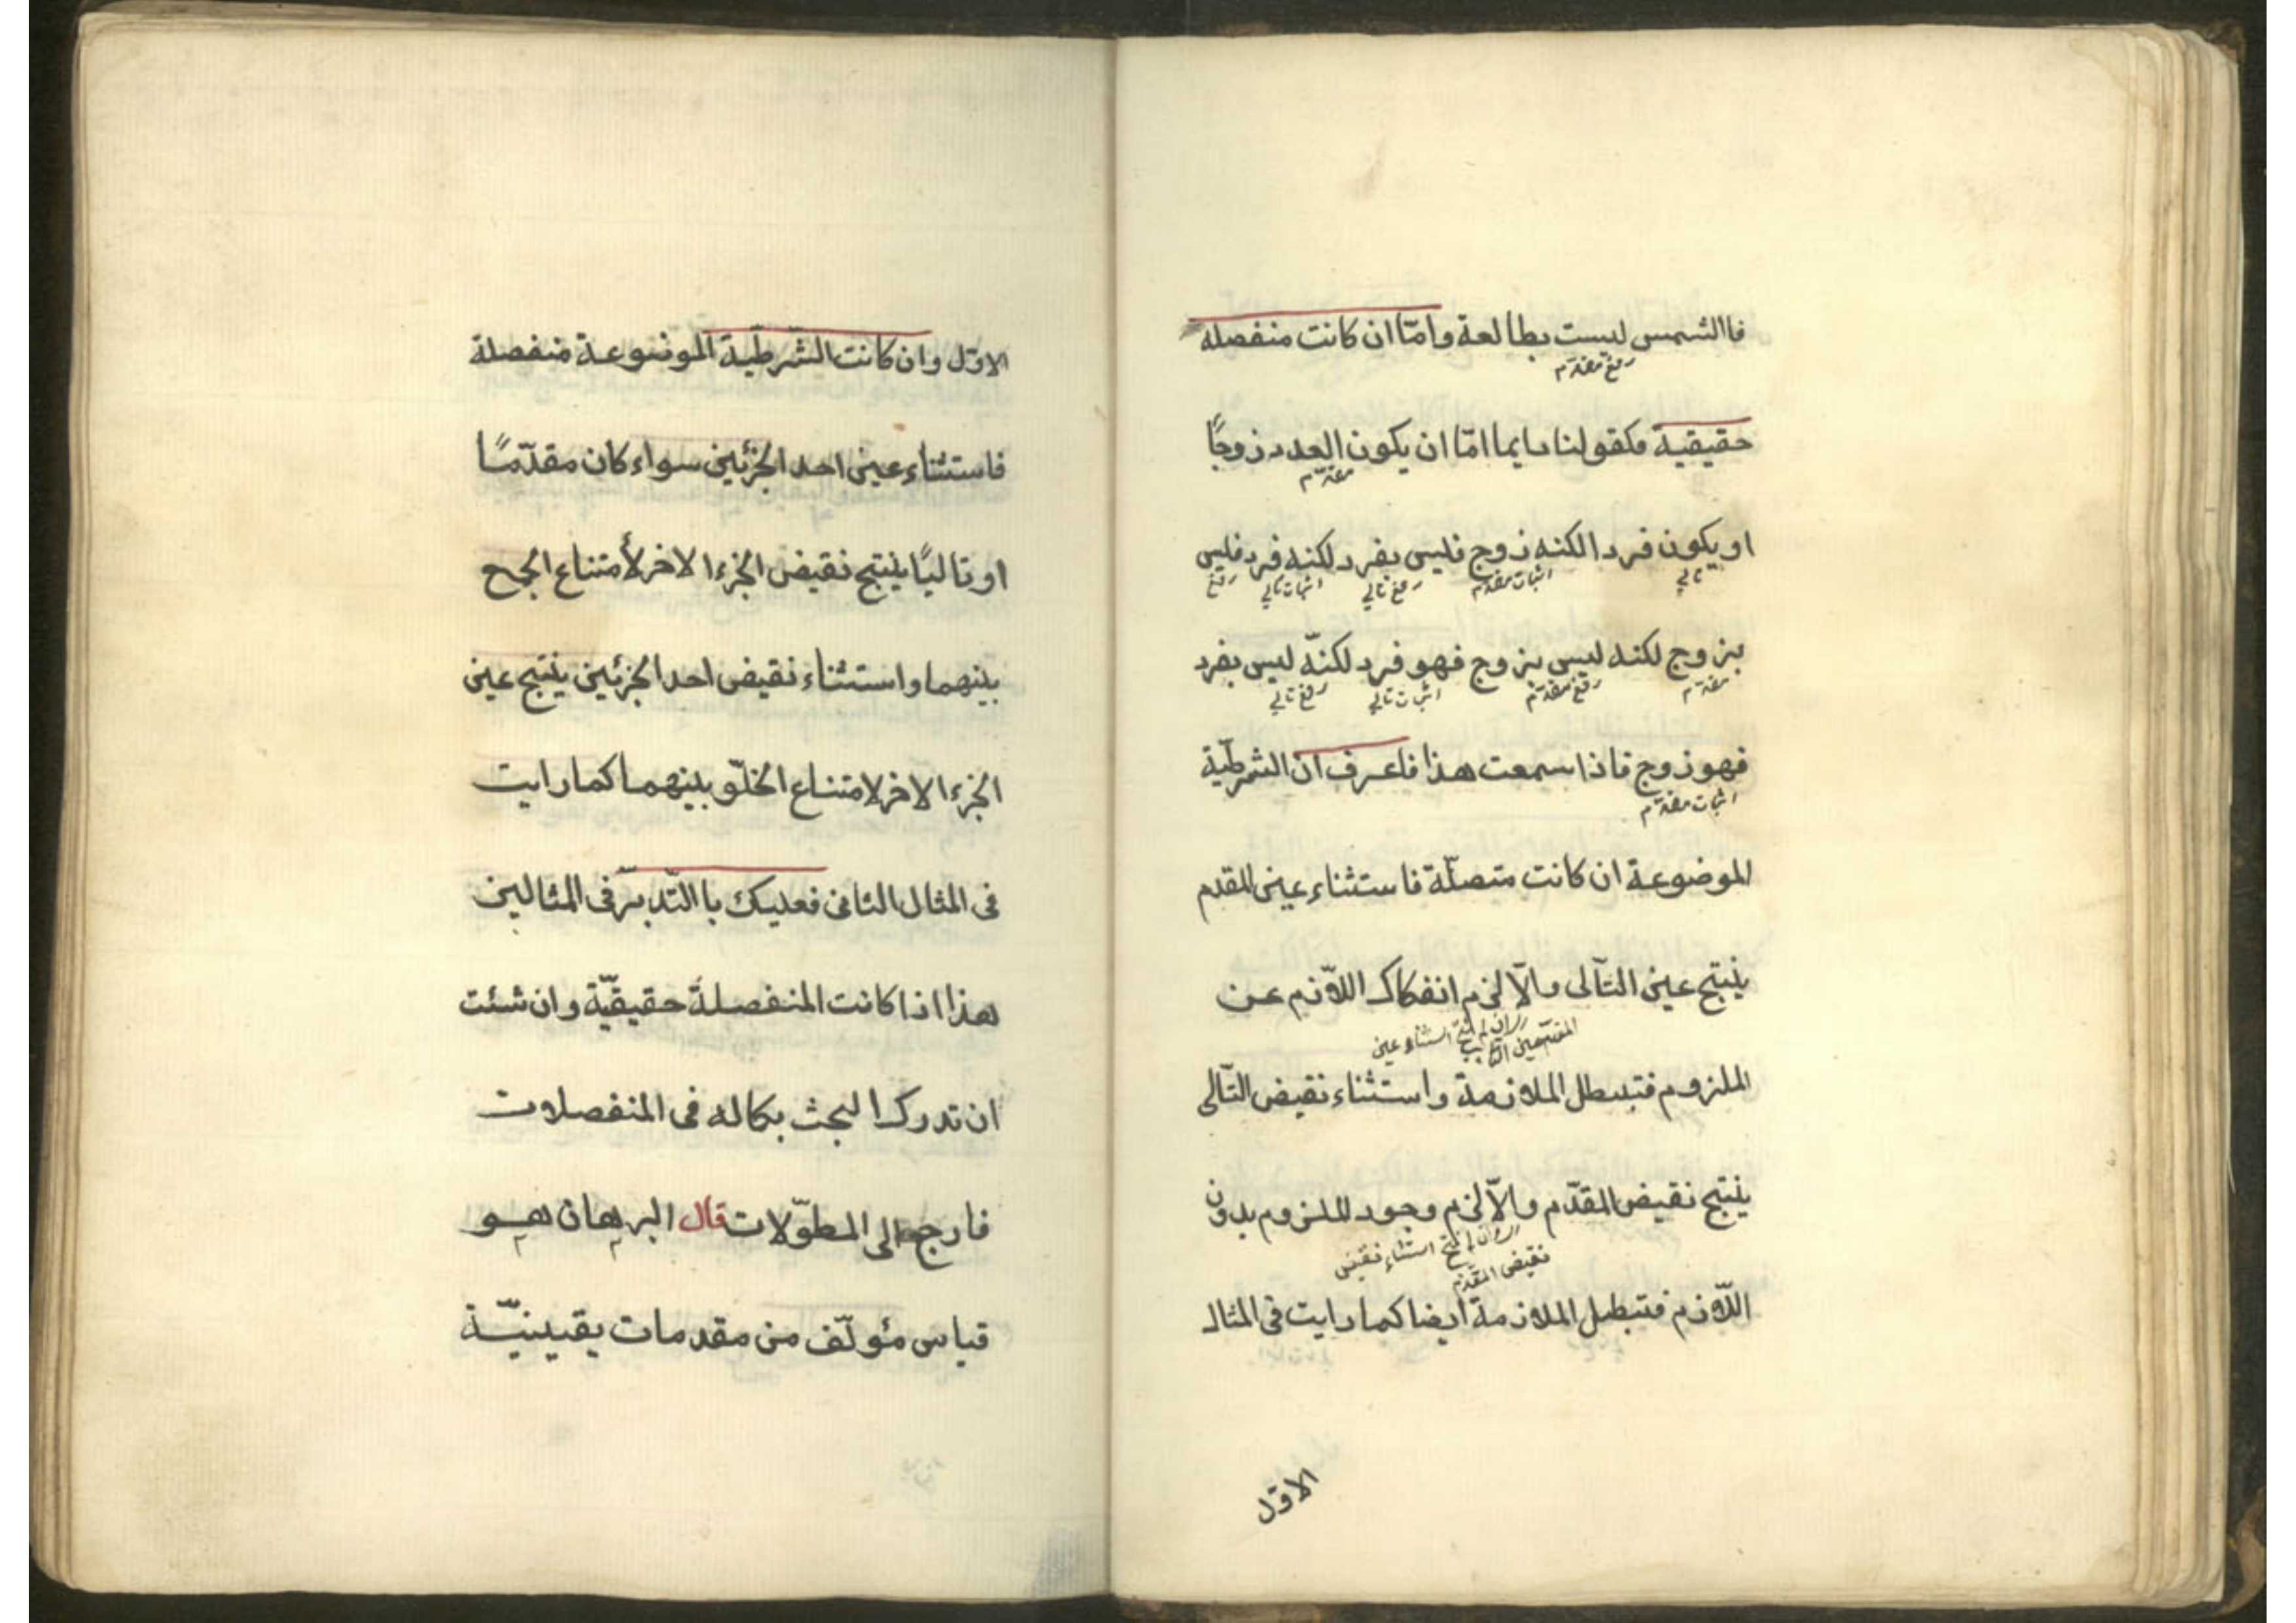 فاالشمس ليست بطالعة وامّا ان كانت منفصلة
رفع مقدّم
حقيقية فكقولنا دايما امّا ان يكون العدد زوجًا
مقدّم
او يكون فردا لكنه زوج فليس بفرد لكنه فرد فليس
تالي اثبات مقدّم رفع تالي اثبات تالي رفع
بزوج لكنه ليس بزوج فهو فرد لكنّه ليس بفرد
مقدّم رفع مقدّم اثبات تالي رفع تالي
فهو زوج فاذا سمعت هذا فاعرف انّ الشرطيّة
اثبات مقدّم
الموضوعة ان كانت متصلّة فاستثناء عين المقدم
ينتج عين التّالى والّا لزم انفكاك اللّازم عن
اى وان لم ينتج استثناء عين
المقدّم عين التالي
الملزوم فتبطل الملازمة واستثناء نقيض التّالى
ينتج نقيض المقدّم والّا لزم وجود الملزوم بدون
اى وان لم ينتج استثناء نقيض
نقيض المقدّم
اللّازم فتبطل الملازمة ايضا كما رايت فى المثال
الاوّل
الاوّل وان كانت الشّرطيّة الموضوعة منفصلة
فاستثناء عين احد الجزئين سواء كان مقدّمًا
او تاليًا ينتج نقيض الجزء الاخر لأمتناع الجمع
بينهما واستثناء نقيض احد الجزئين ينتج عين
الجزء الاخر لامتناع الخلّو بينهما كما رايت
فى المثال الثانى فعليك باالتّدبّر فى المثالين
هذا اذا كانت المنفصلة حقيقيّة وان شئت
ان تدرك البحث بكماله فى المنفصلات
فارجع الى المطوّلات قال البرهان هو
قياس مئولّف من مقدمات يقينيّة